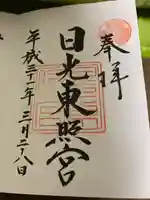 奉拝
日光東照宮
平成三十一年三月二八日